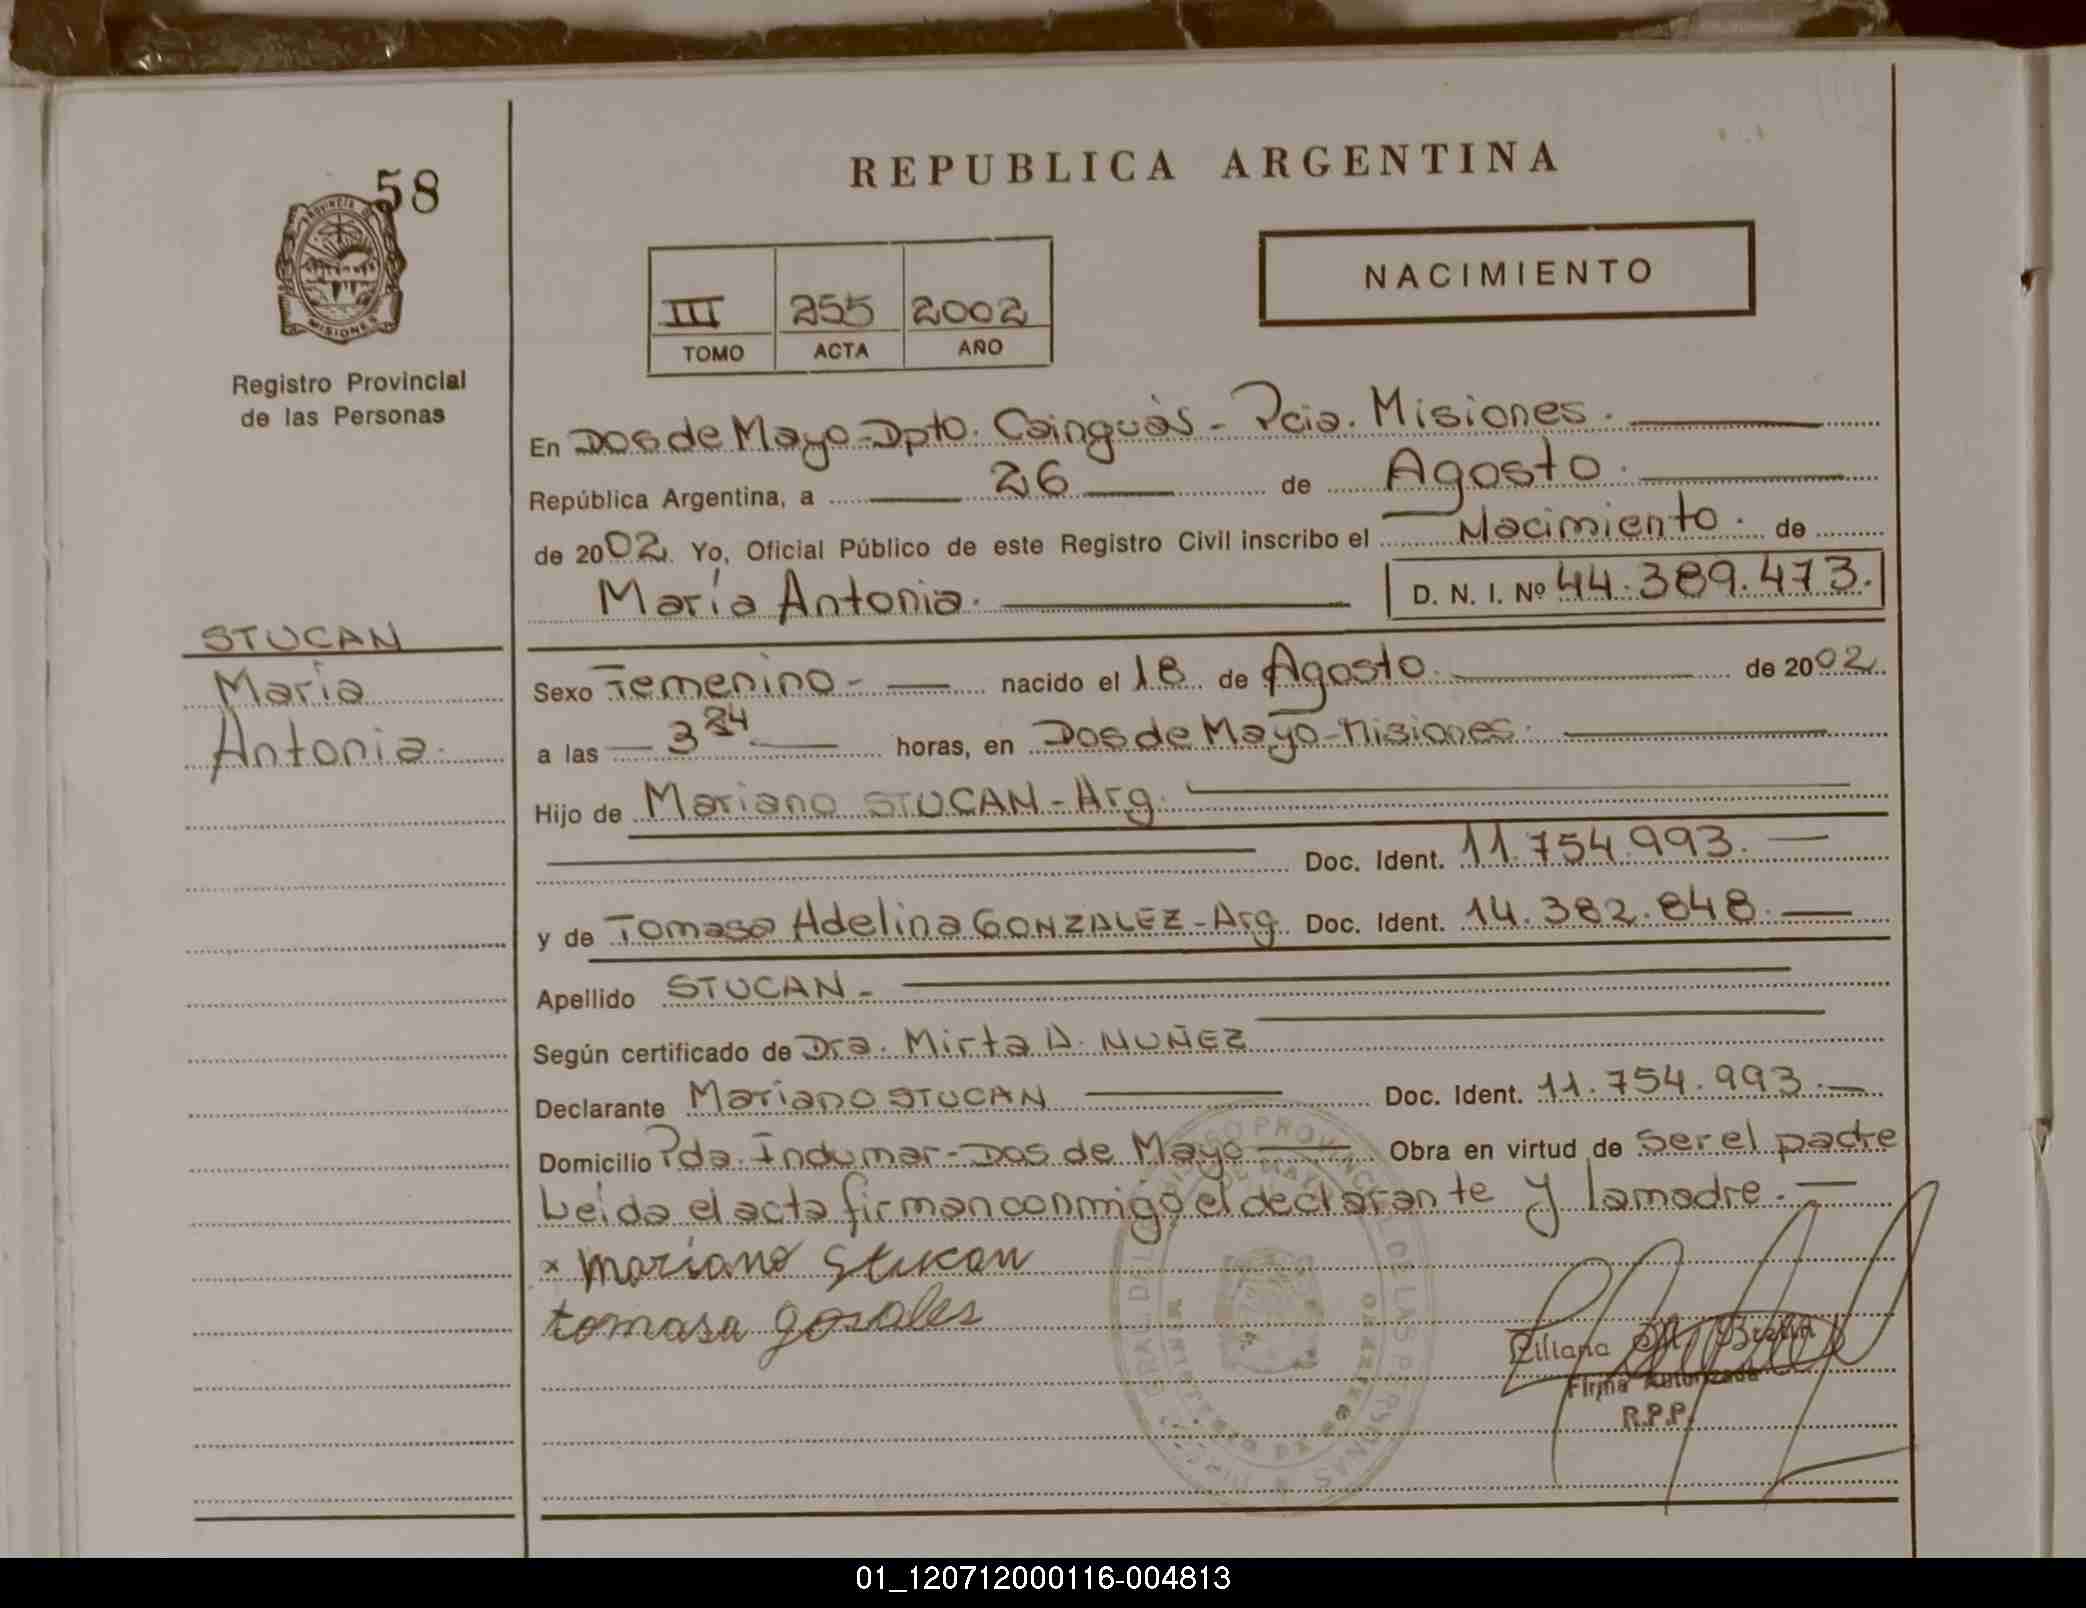 58
PROVINCIA DE
MISIONES
Registro Provincial
de las Personas
REPUBLICA ARGENTINA
III 255 2002
TOMO ACTA AÑO
NACIMIENTO
En Dos de Mayo-Dpto. Cainguàs - Pcia. Misiones.
República Argentina, a 26 de Agosto.
de 2002. Yo, Oficial Público de este Registro Civil inscribo el Nacimiento. de
María Antonia. D. N. I. Nº 44.389.473.
STUCAN
María
Antonia.
Sexo Femenino- nacido el 18 de Agosto. de 2002.
a las 3 24 horas, en Dos de Mayo-Misiones.
Hijo de Mariano STUCAN - Arg.
Doc. Ident. 11.754.993.
y de Tomasa Adelina GONZALEZ - Arg. Doc. Ident. 14.382.848.
Apellido STUCAN-
Según certificado de Dra. Mirta A. NUÑEZ
Declarante Mariano STUCAN Doc. Ident. 11.754.993.
Domicilio Pda. Indumar-Dos de Mayo Obra en virtud de ser el padre
Leída el acta firman conmigo el declarante y la madre.
x mariano stucan
tomasa gosales
Liliana
Firma Autorizada
R.P.P.
01_120712000116-004813